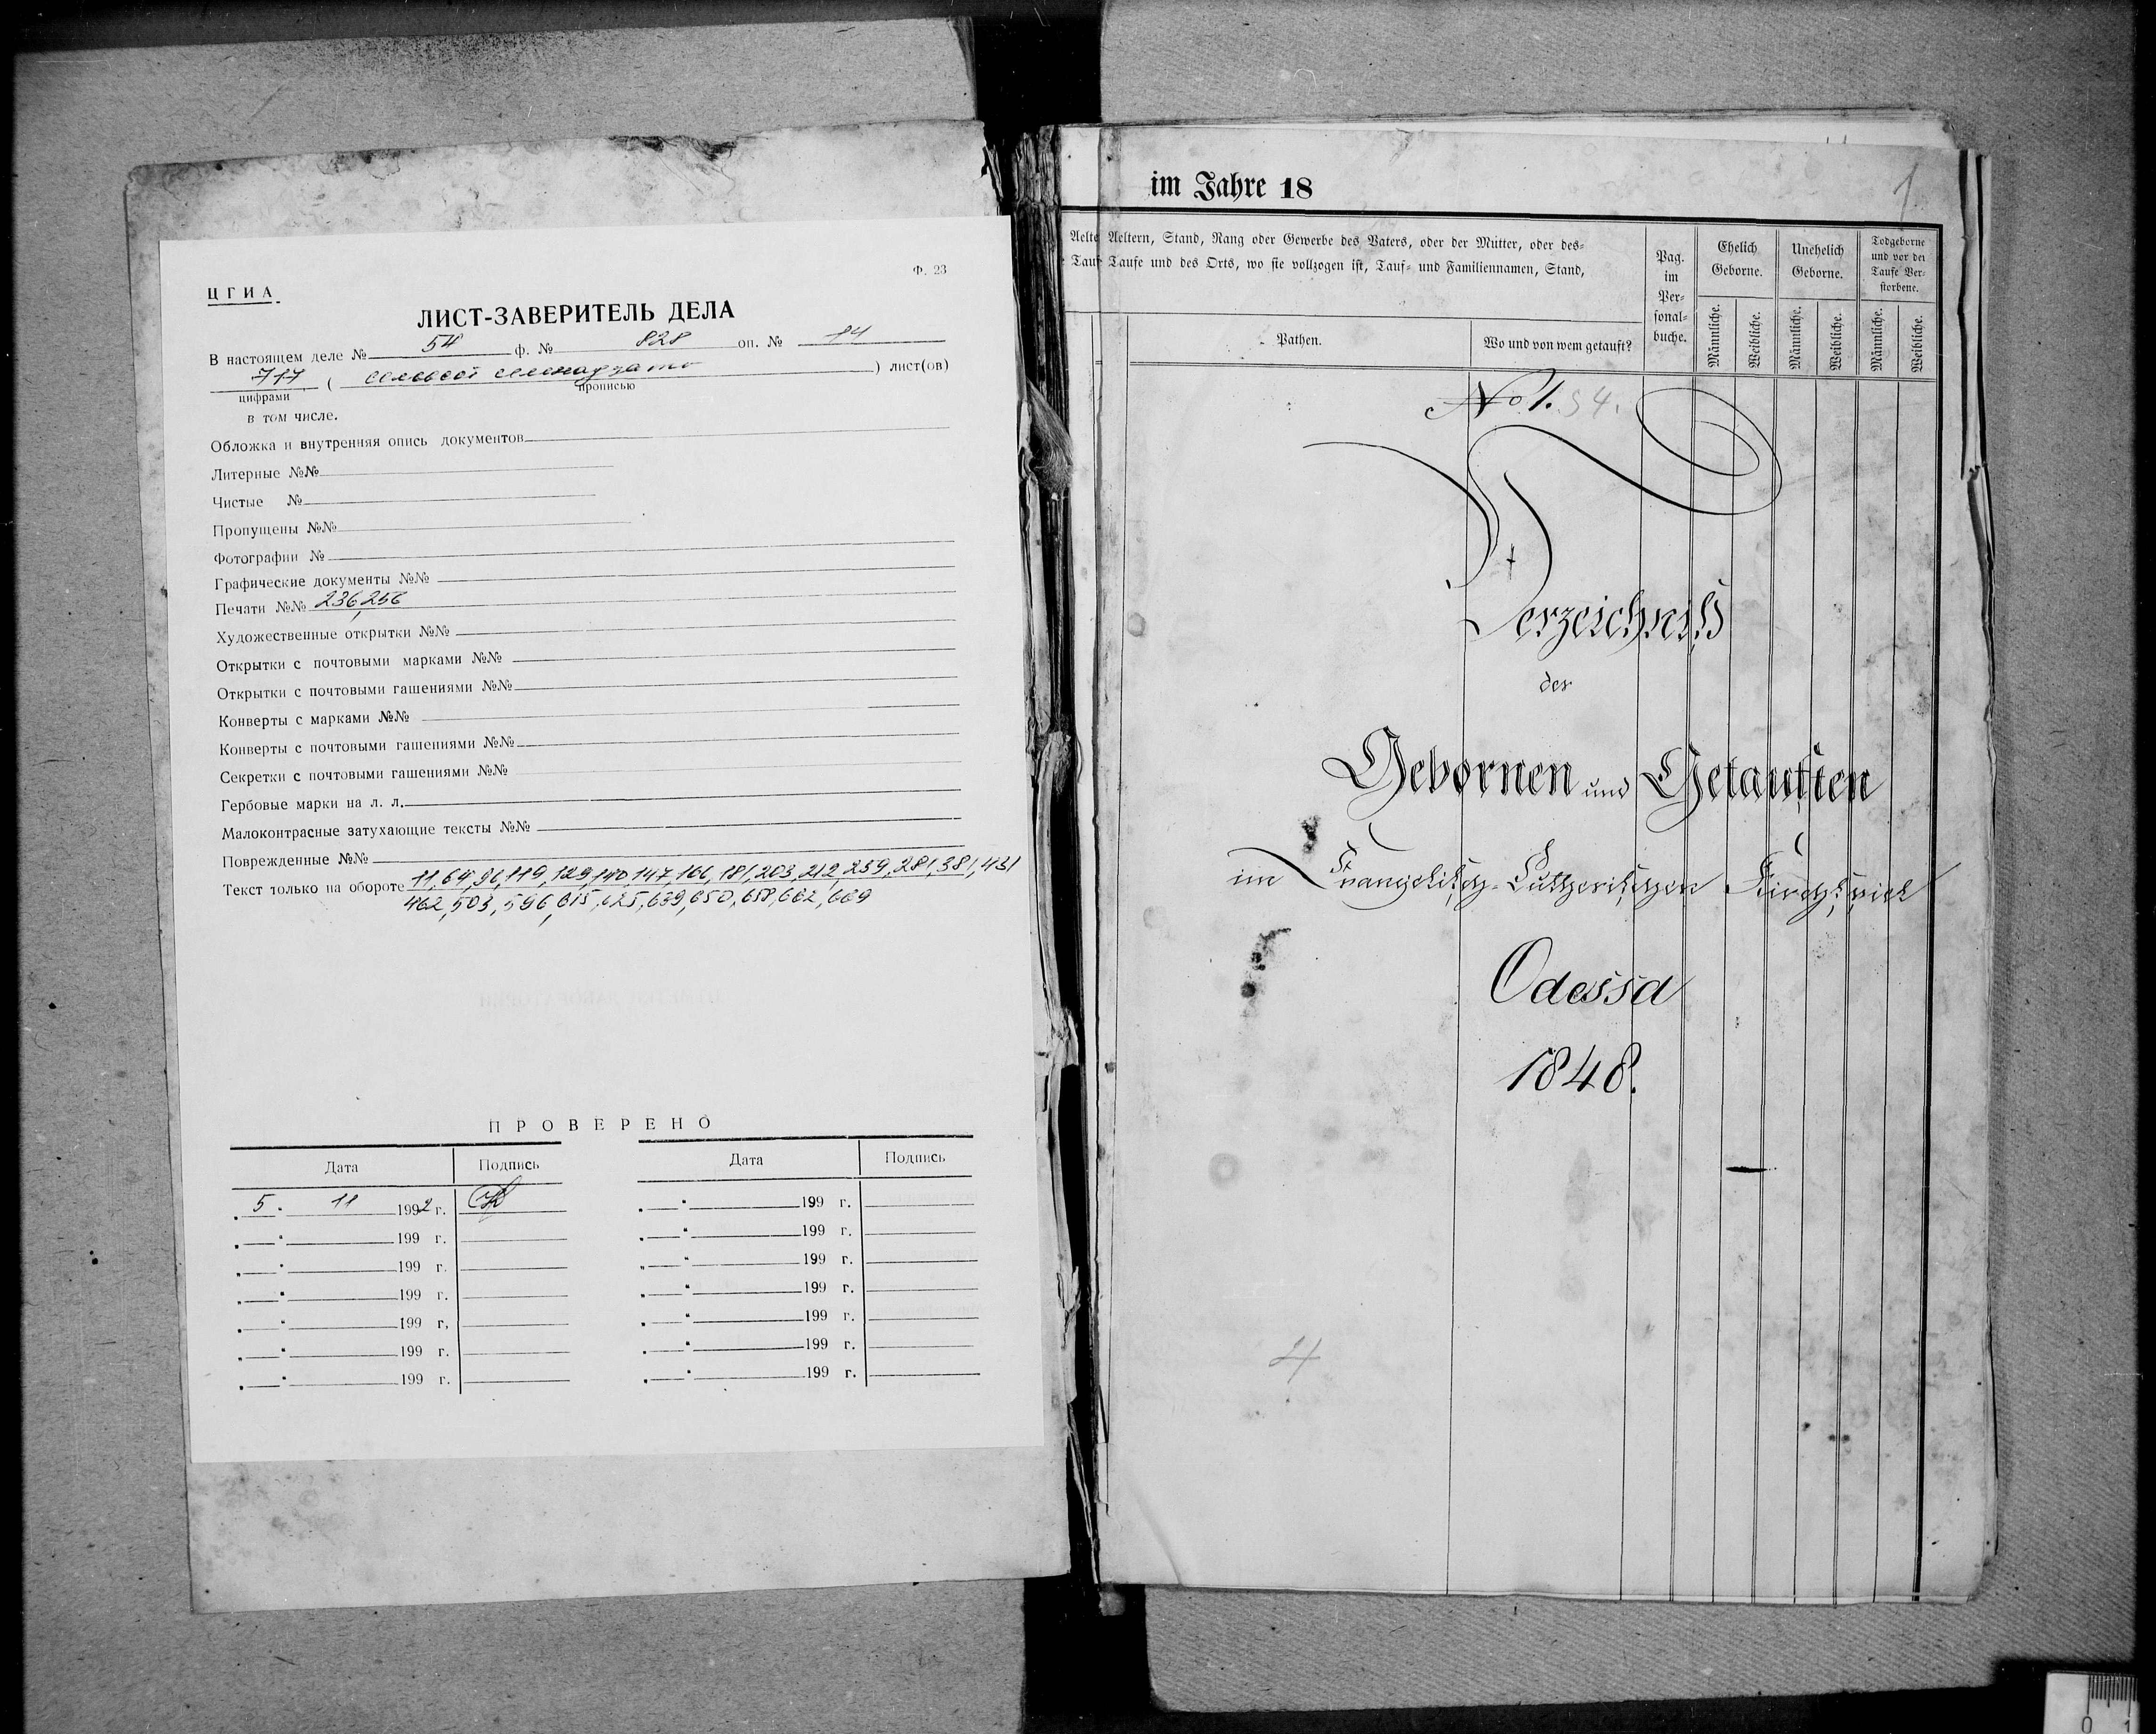 Ф. 23
ЦГИА.
ЛИСТ-ЗАВЕРИТЕЛЬ ДЕЛА
В настоящем деле № 54 ф. № 828 оп. № 14
717 ( семьсот семнадцать ) лист(ов)
цифрами прописью
в том числе.
Обложка и внутренняя опись документов
Литерные №№
Чистые №
Пропущены №№
Фотографии №
Графические документы №№
Печати №№ 236, 256
Художественные открытки №№
Открытки с почтовыми марками №№
Открытки с почтовыми гашениями №№
Конверты с марками №№
Конверты с почтовыми гашениями №№
Секретки с почтовыми гашениями №№
Гербовые марки на л. л.
Малоконтрасные затухающие тексты №№
Поврежденные №№
Текст только на обороте 11, 64, 96, 119, 129, 140, 147, 166, 181, 203, 212, 259, 281, 381, 431
462, 503, 596, 615, 625, 639, 650, 658, 662, 669
ПРОВЕРЕНО
Дата Подпись Дата Подпись
„5" 11 1992 г. „ " 199 г.
„ " 199 г. „ " 199 г.
„ " 199 г. „ " 199 г.
„ " 199 г. „ " 199 г.
„ " 199 г. „ " 199 г.
„ " 199 г. „ " 199 г.
„ " 199 г. „ " 199 г.
im Jahre 18
1
Aelte Aeltern, Stand, Rang oder Gewerbe des Vaters, oder der Mutter, oder des-
Tauf Taufe und des Orts, wo sie vollzogen ist, Tauf- und Familiennamen, Stand,
Pathen.
Wo und von wem getauft?
Pag.
im
Per-
sonal-
buche.
Ehelich
Geborne.
Unehelich
Geborne.
Todgeborne
und vor der
Taufe Ver-
storbene.
Männliche. Weibliche. Männliche. Weibliche. Männliche. Weibliche.
No 1. 54.
Verzeichniß
der
Gebornen und Getauften
im Evangelisch-Lutherischen Kirchspiel
Odessa
1848.
4
0 1